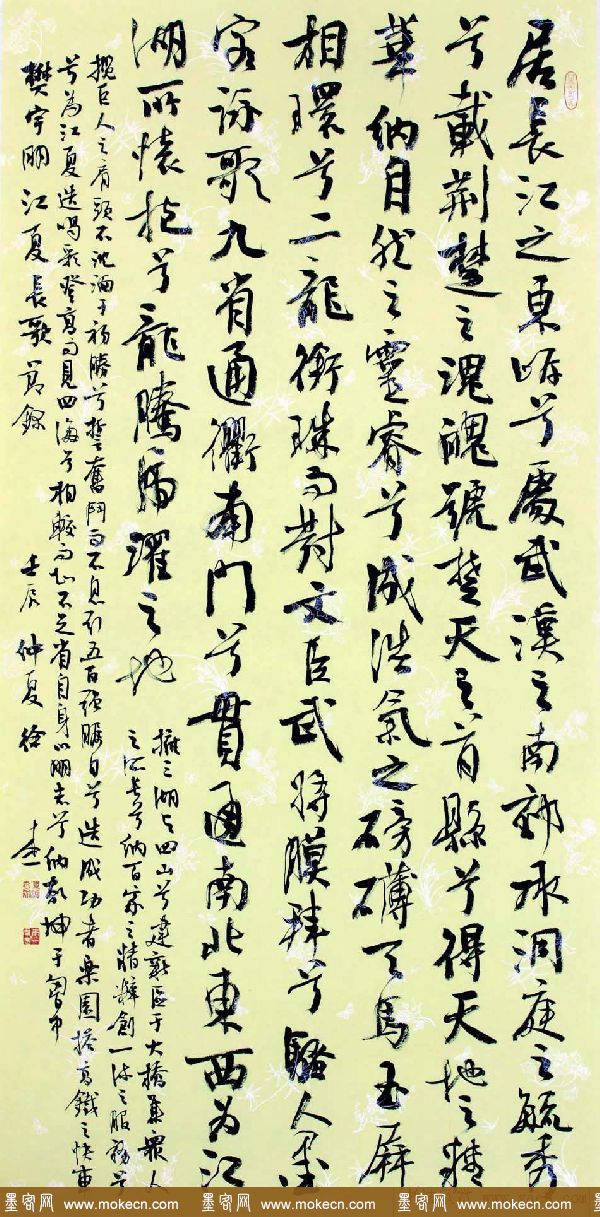 居長江之東畔兮處武漢之南郊承洞庭之毓秀
兮載荆楚之瑰魄號楚天之首縣兮得天地之精
華納自然之靈睿兮成浩氣之磅礴天馬玉屏
相環兮二龍銜珠而對文臣武將膜拜兮騷人墨
客詠歌九省通衢南門兮貫通南北東西为江
湖所懷抱兮龍騰躍之地
擁三湖与四山兮建新區于大橋集眾人
之所长兮納百家之精粹創一流之服務兮
攬巨人之肩頭不沉湎于勝兮誓奮鬥而不息引五百强矚目兮造成功者樂園搭高鐵之快車
兮為江夏造喝彩登高而見四海兮相較而知不足省自身以明志兮納乾坤于胸中
樊宇明江夏長歌節錄 壬辰仲夏徐
墨客网 www.mokecn.com 墨客网 www.mokecn.com 墨客网 www.mokecn.com 墨客网 www.mokecn.com